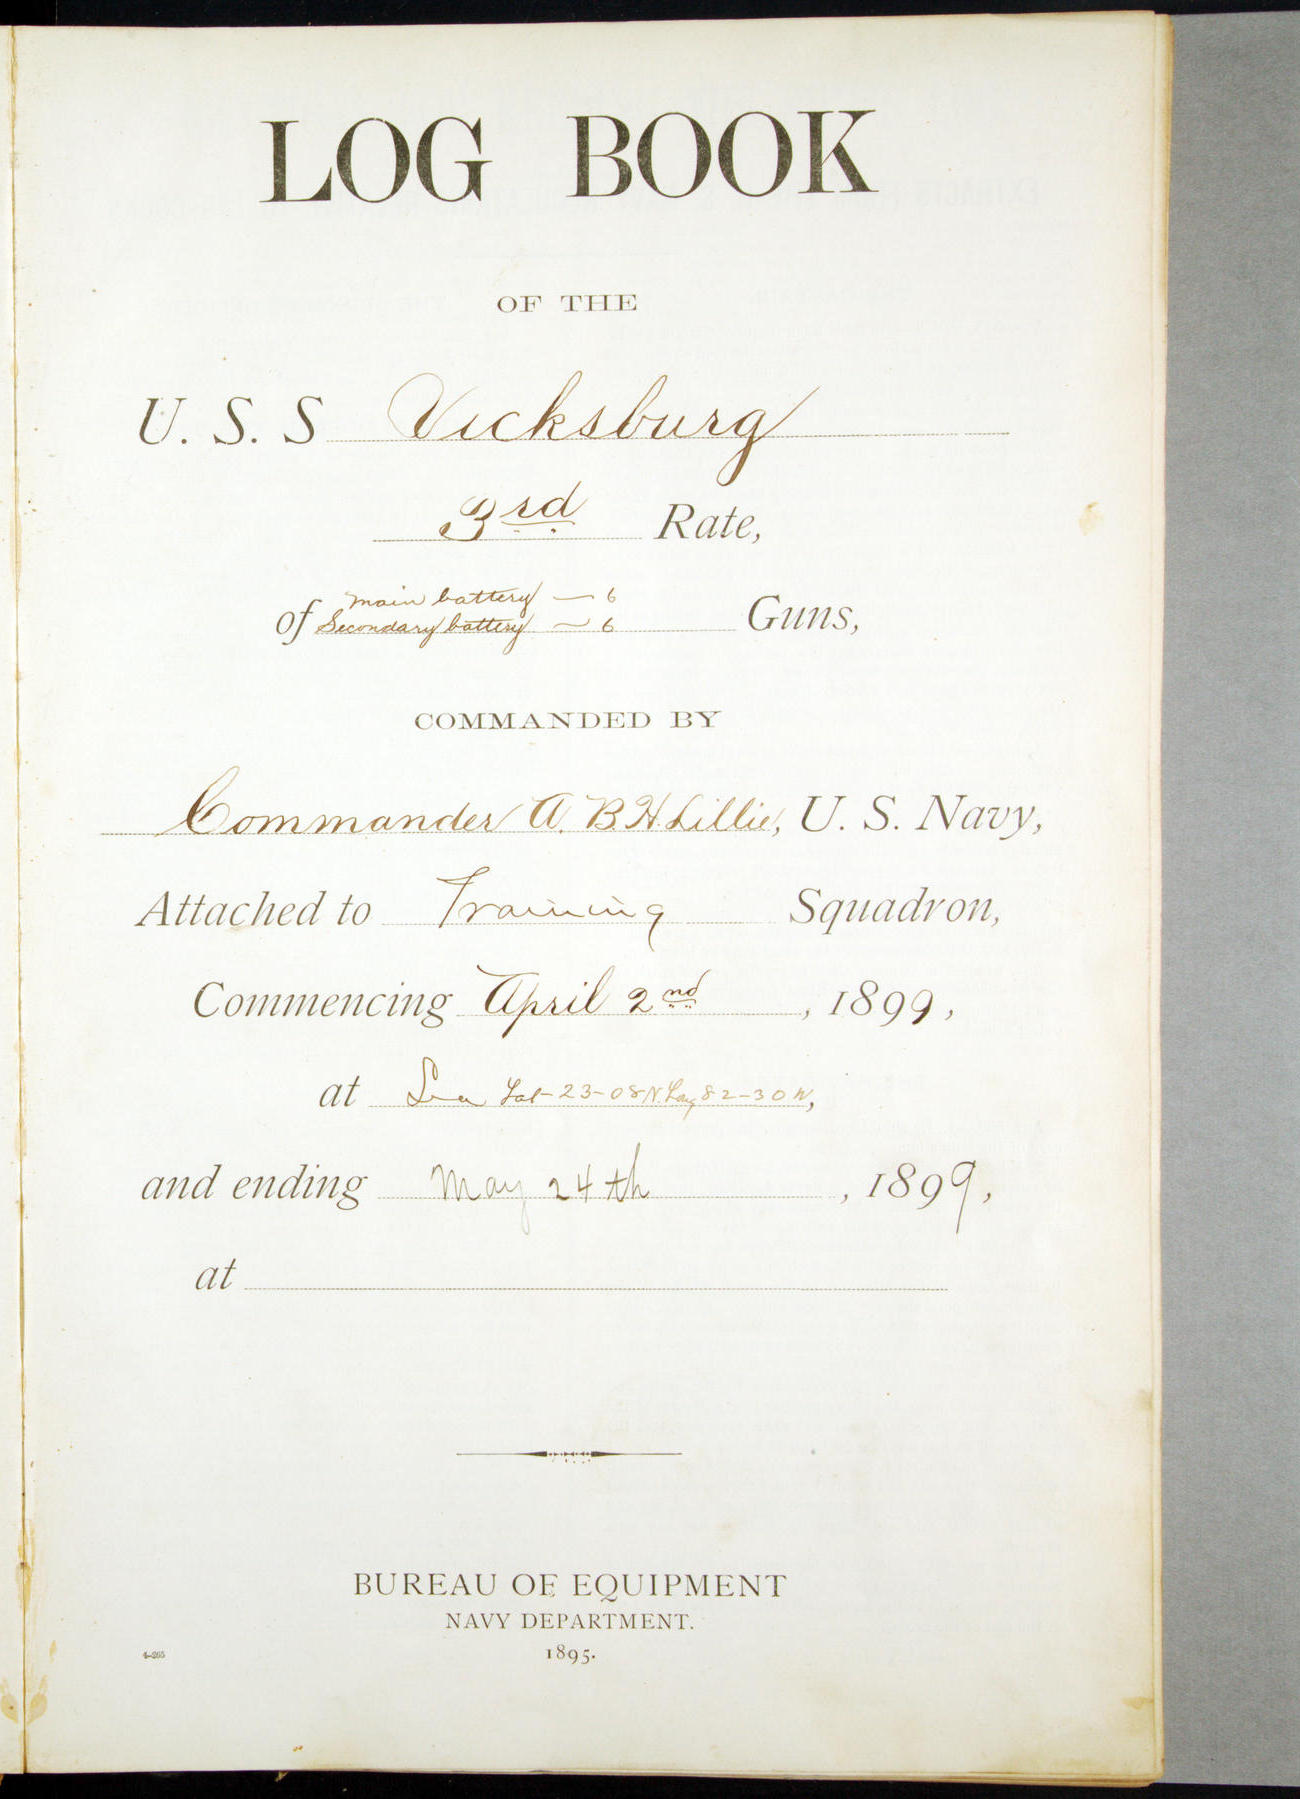 LOG BOOK
OF THE
U. S. S Vicksburg
3rd Rate,
main battery — 6
of Secondary battery — 6 Guns,
COMMANDED BY
Commander A. B. H. Lillie, U. S. Navy,
Attached to Training Squadron,
Commencing April 2nd, 1899,
at Sea Lat-23-08 N. Long 82-30 W,
and ending May 24th, 1899,
at
BUREAU OF EQUIPMENT
NAVY DEPARTMENT.
1895.
4-265